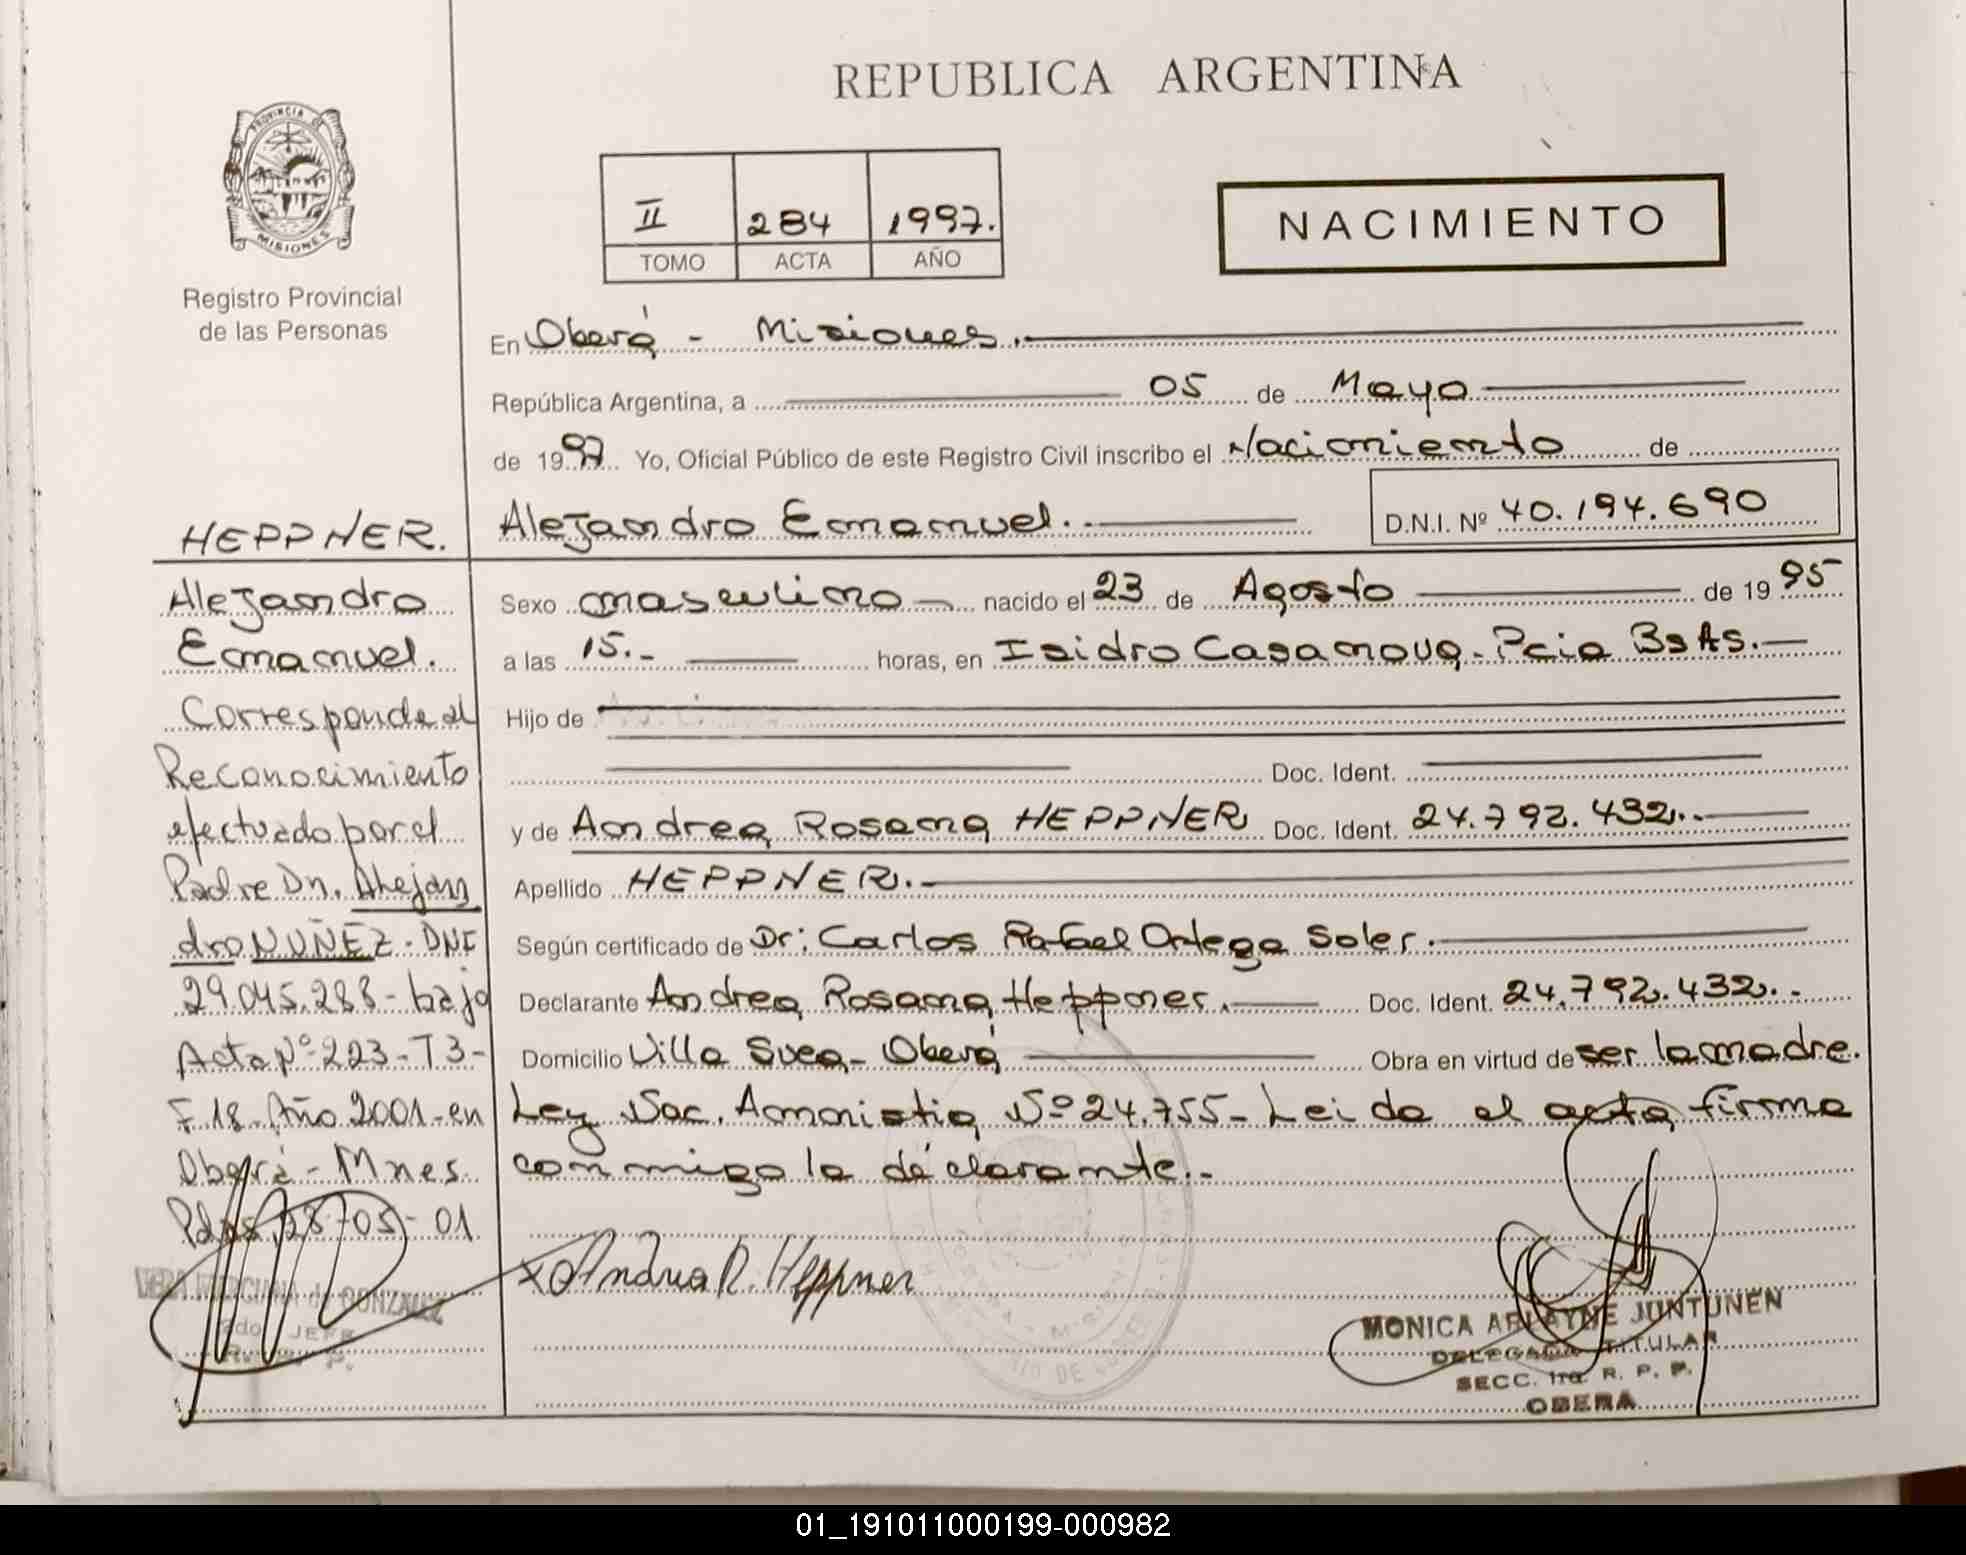 REPUBLICA ARGENTINA
PROVINCIA DE
MISIONES
Registro Provincial
de las Personas
II 284 1997.
TOMO ACTA AÑO
NACIMIENTO
En Oberá - Misiones.
República Argentina, a 05 de Mayo
de 1997 Yo, Oficial Público de este Registro Civil inscribo el Nacimiento de
Alejandro Emanuel. D.N.I. Nº 40.194.690
Sexo masculino nacido el 23 de Agosto de 1995
a las 15.- horas, en Isidro Casanova - Pcia Bs As.-
Hijo de
Doc. Ident.
y de Andrea Rosana HEPPNER Doc. Ident. 24.792.432.-
Apellido HEPPNER.-
Según certificado de Dr: Carlos Rafael Ortega Soler.
Declarante Andrea Rosana Heppner. Doc. Ident. 24.792.432.-
Domicilio Villa Svea - Oberá Obra en virtud de ser la madre.
Ley Nac. Amnistia Nº 24.755 - Leida el acta firma
conmigo la declarante.-
x Andrea R. Heppner
MONICA ARLAYNE JUNTUNEN
DELEGADA TITULAR
SECC. 1ra. R. P. P.
OBERA
HEPPNER.
Alejandro
Emanuel.
Corresponde al
Reconocimiento
efectuado por el
Padre Dn. Alejan
dro NUÑEZ - DNI
29.045.288 - bajo
Acta Nº 223 - T3 -
F. 18 - Año 2001 - en
Oberá - Mnes.
Pdas, 28-05-01
de GONZALEZ
JEFE
01_191011000199-000982